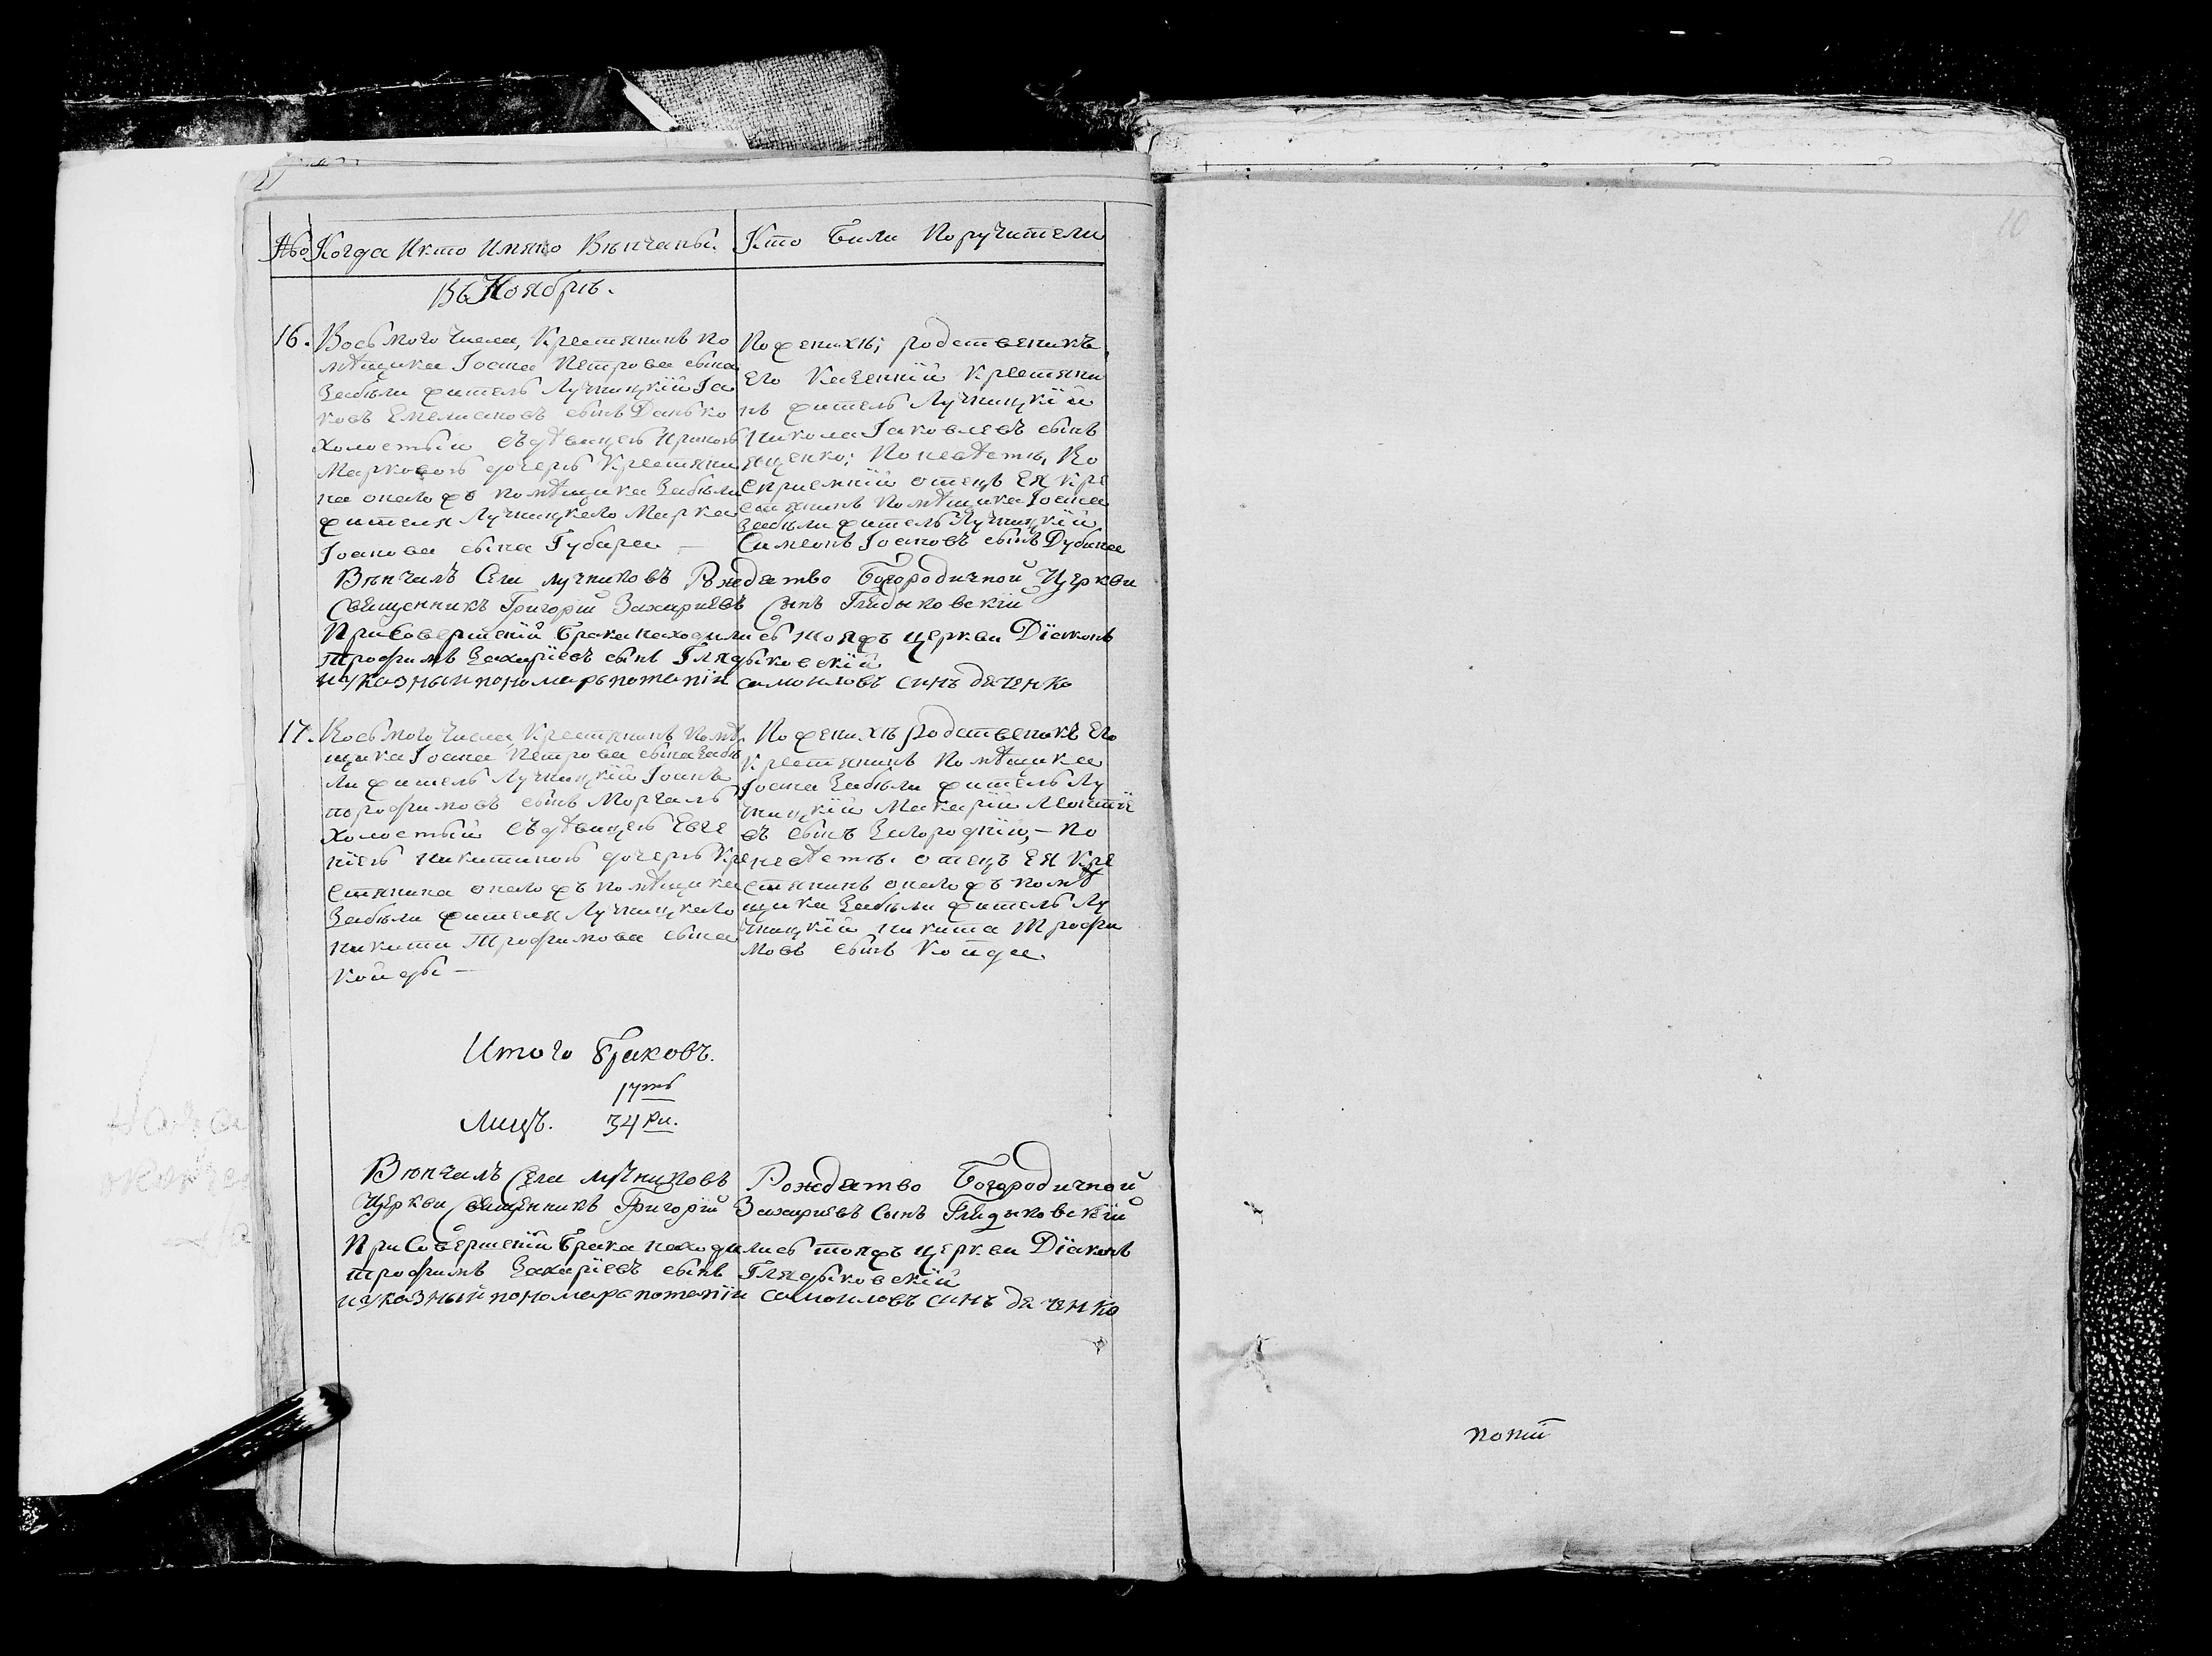 № Когда И кто Имянно Вѣнчаны.
Кто были Поручители
Въ Ноябрѣ.
16. Восьмого числа, Крестянинъ по
мѣщика Іоана Петрова сына
Забѣли житель Лучницкій Іа
ковъ Емелиановъ сынъ Данько
холостый съ дѣвицею
Марковою дочерью Крестяни
на оного жъ помѣщика Забѣли
жителя Лучницкого Марка
Іоанова сына Губара —
По женихѣ; родственикъ
его Казенній Крестяни
нъ житель Лучницкій
Никола Іаковлевъ сынъ
Яценко; По невѣсти, Во
сприемній отецъ Ея Кре
стянинъ Помѣщика Іоана
Забѣли житель Лучницкій
Симеонъ Іоановъ сынъ Дубина
Вѣнчалъ Села лучниковъ Рождество Богородичной Церкви
Священникъ Григорій Захариевъ Сынъ Глядыковскій
При Совершеніи брака находились тояжъ церкви Діяконъ
Трофимъ Захаріевъ сынъ Глядыковскій
и указный пономарь потапій самоиловъ синъ дяченко
17. Восьмого числа, Крестянинъ помѣ
щика Іоана Петрова сына Забѣ
ли житель Лучницкій Іоанъ
порофимовъ сынъ Моргаль
холостый съ дѣвицею Евге
ніею Никитиною дочерью Кре
стянина оного жъ помѣщика
Забѣли жителя Лучницкого
Никити Трофимова сына
Койды —
По женихѣ родственикъ его
Крестянинъ Помѣщика
Іоана Забѣли житель Лу
чницкій Макарій Леонтіе
въ сынъ Загородній, — По
невѣсти. отецъ Ея Кре
стянинъ оного жъ помѣ
щика Забѣли житель Лу
чницкій Никита Трофи
мовъ сынъ Койда.
Итого браковъ.
17ть
Лицъ. 34 ри.
Вѣнчалъ Села лучниковъ Рождество Богородичной
Церкви Священникъ Григорій Захариевъ Сынъ Глядыковскій
При Совершеніи брака находились тояжъ церкви Діяконъ
Трофимъ Захаріевъ сынъ Глядыковскій
и указный пономарь потапій самоиловъ синъ дяченко
10
попій